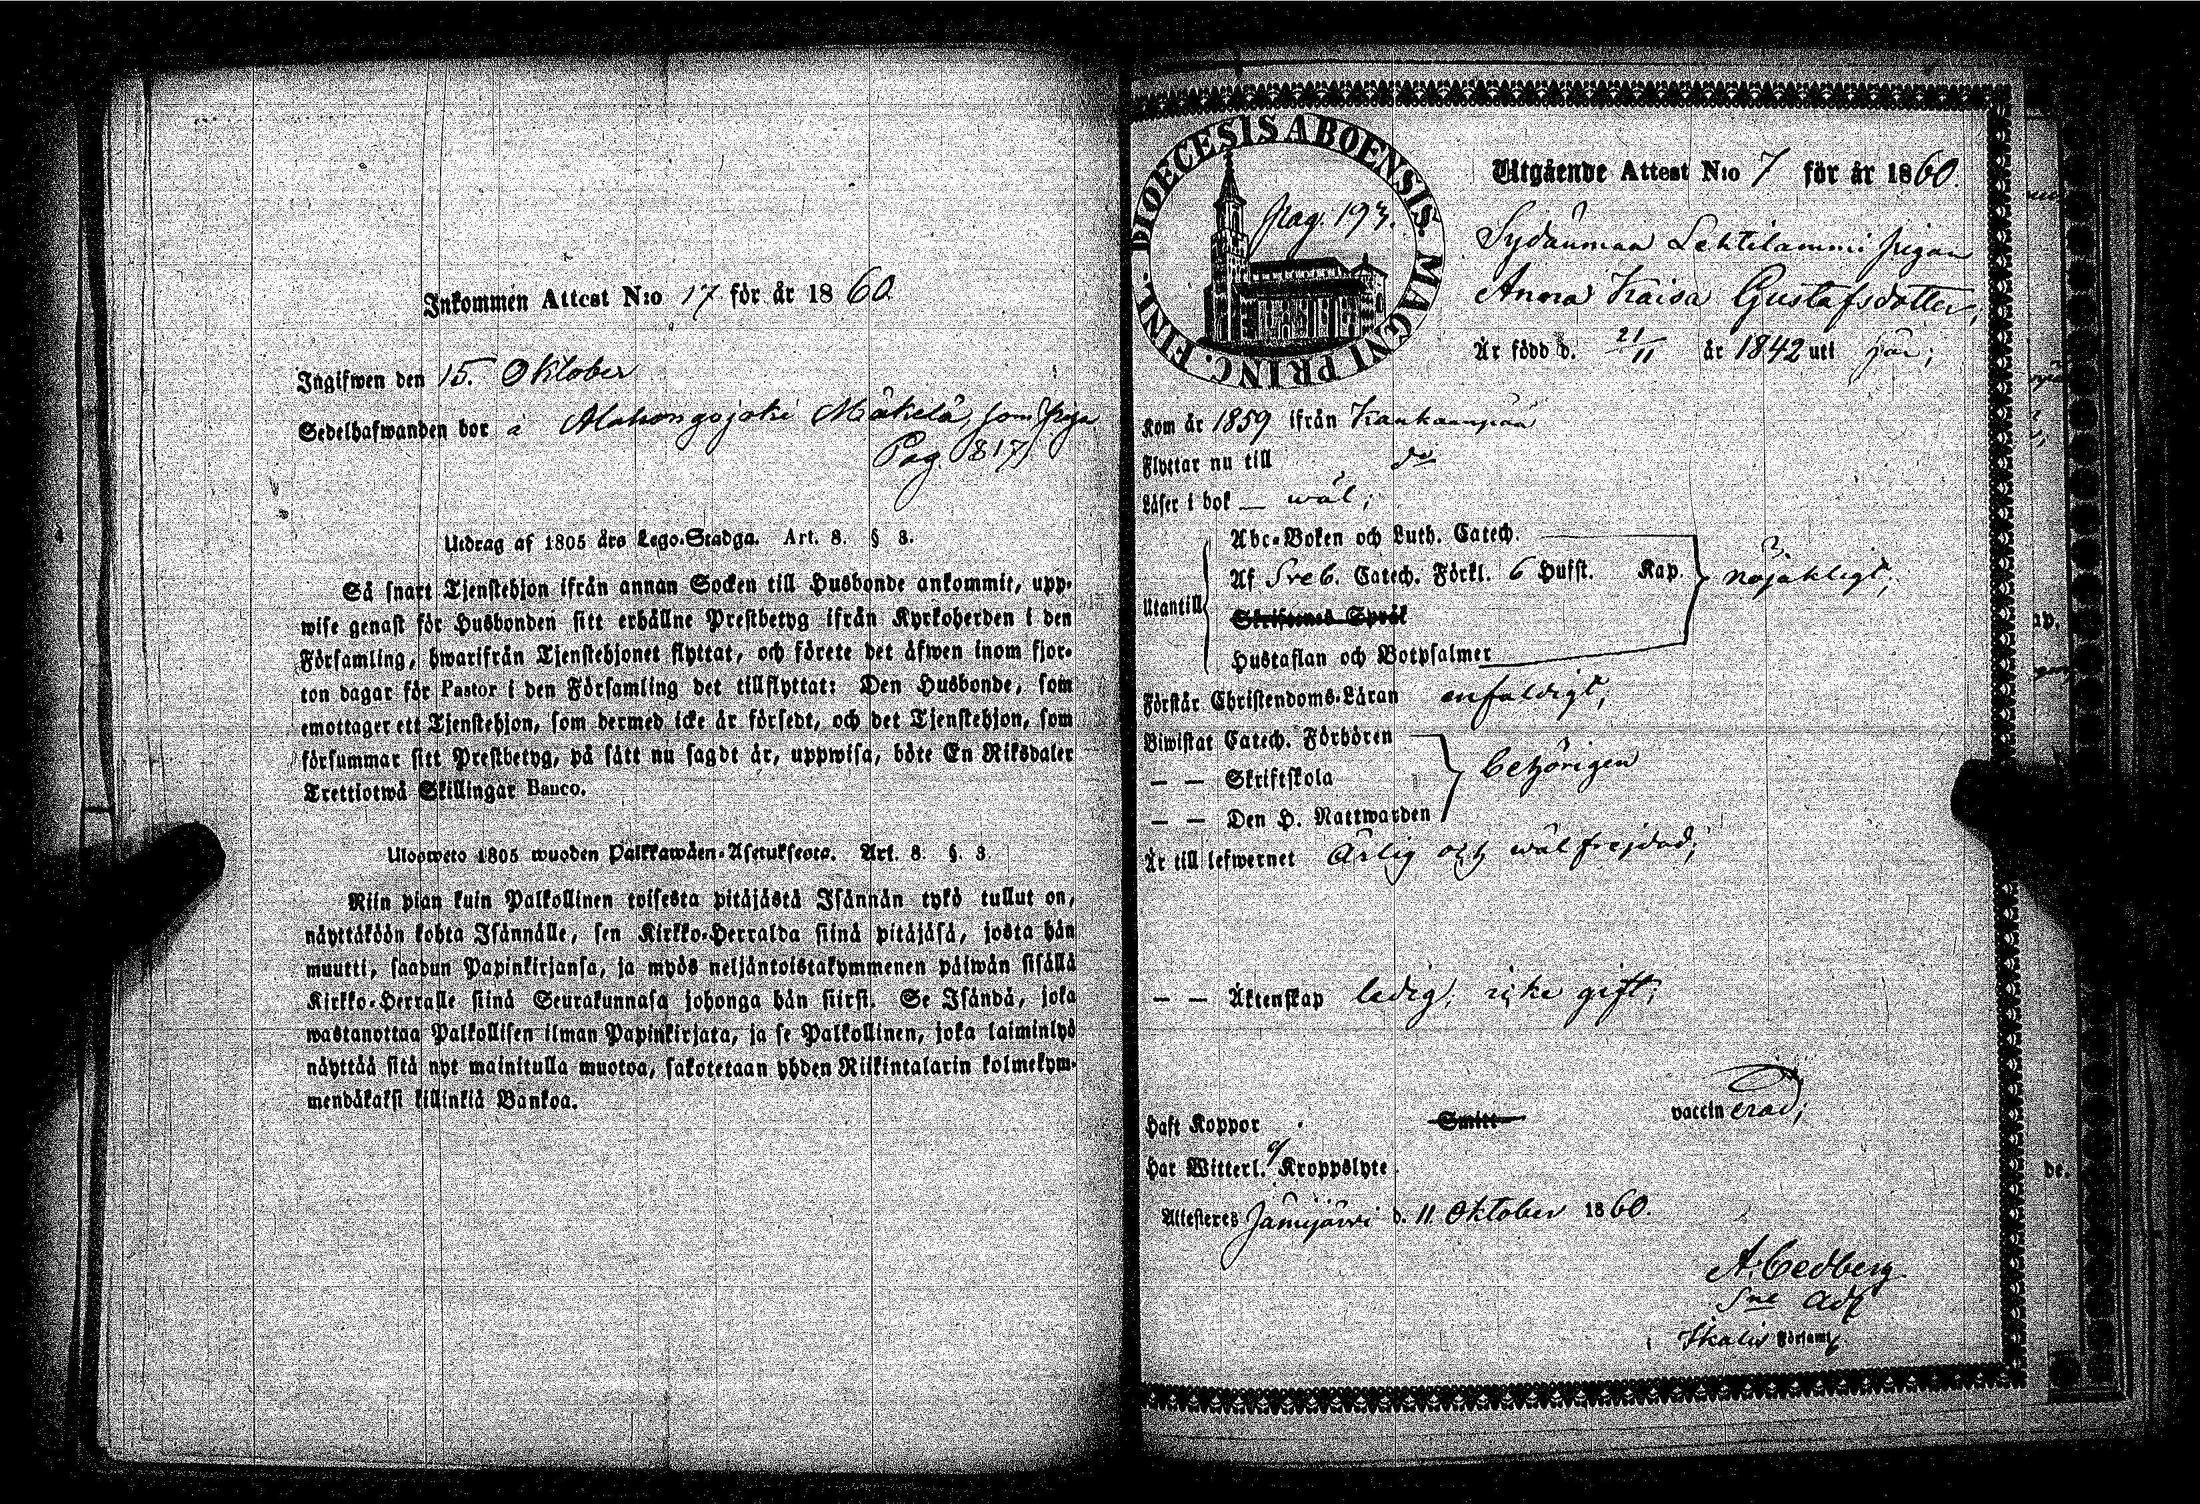 Inkommen Attest N:o 17 för år 1860.
Ingifwen den 15. Oktober
Sedelhafwanden bor å Alahongojoki Mäkelä, som piga
Pag. 817
Utdrag af 1805 års Lego-Stadga. Art. 8. § 3.
Så snart Tjenstehjon ifrån annan Socken till Husbonde ankommit, upp-
wise genast för Husbonden sitt erhållne Prestbetyg ifrån Kyrkoherden i den
Församling, hwarifrån Tjenstehjonet flyttat, och förete det äfwen inom fjor-
ton dagar för Pastor i den Församling det tillflyttat: Den Husbonde, som
emottager ett Tjenstehjon, som dermed icke är försedt, och det Tjenstehjon, som
försummar sitt Prestbetyg, på sätt nu sagdt är, uppwisa, böte En Riksdaler
Trettiotwå Skillingar Banco.
Ulosweto 1805 wuoden Palkkawäen-Asetuksesta. Art. 8. §. 3.
Niin pian kuin Palkollinen toisesta pitäjästä Isännän tykö tullut on,
näyttäköön kohta Isännälle, sen Kirkko-Herralda siinä pitäjäsä, josta hän
muutti, saadun Papinkirjansa, ja myös neljäntoistakymmenen päiwän sisällä
Kirkko-Herralle siinä Seurakunnasa johonga hän siirsi. Se Isändä, joka
wastanottaa Palkollisen ilman Papinkirjata, ja se Palkollinen, joka laiminlyö
näyttää sitä nyt mainitulla muotoa, sakotetaan yhden Riikintalarin kolmekym-
mendäkaksi killinkiä Bankoa.
DIOECESIS ABOENSIS. MAGNI PRINC. FINL.
pag. 193.
Utgående Attest N:o 7 för år 1860.
Sydänmaa Lehtilammi pigan
Anna Kaisa Gustafsdotter,
Är född d. 21/11 år 1842 uti här;
Kom år 1859 ifrån Kankaanpää
Flyttar nu till do
Läser i bok — wäl;
Utantill
Abc-Boken och Luth. Catech.
Af Sveb. Catech. Förkl. 6 Hufst. Kap.
nöjaktigt;
Skriftenes Språk
Hustaflan och Botpsalmer
Förstår Christendoms-Läran enfaldigt;
Biwistat Catech. Förhören
— — Skriftskola
behörigen
— — Den H. Nattwarden
Är till lefwernet Ärlig och wälfrejdad;
— — Äktenskap ledig, icke gift;
Haft Koppor Smitt vaccinerad;
Har Witterl. ej Kroppslyte
Attesteres Jämijärwi d. 11 Oktober 1860.
A. Cedberg
Sne Adj
i Ikalis Församl.